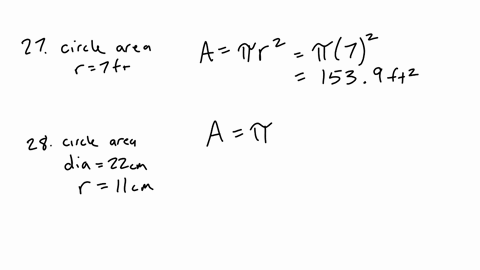 27. circle area
r = 7 ft
A = πr² = π(7)²
= 153.9 ft²
28. circle area
dia = 22 cm
r = 11 cm
A = π